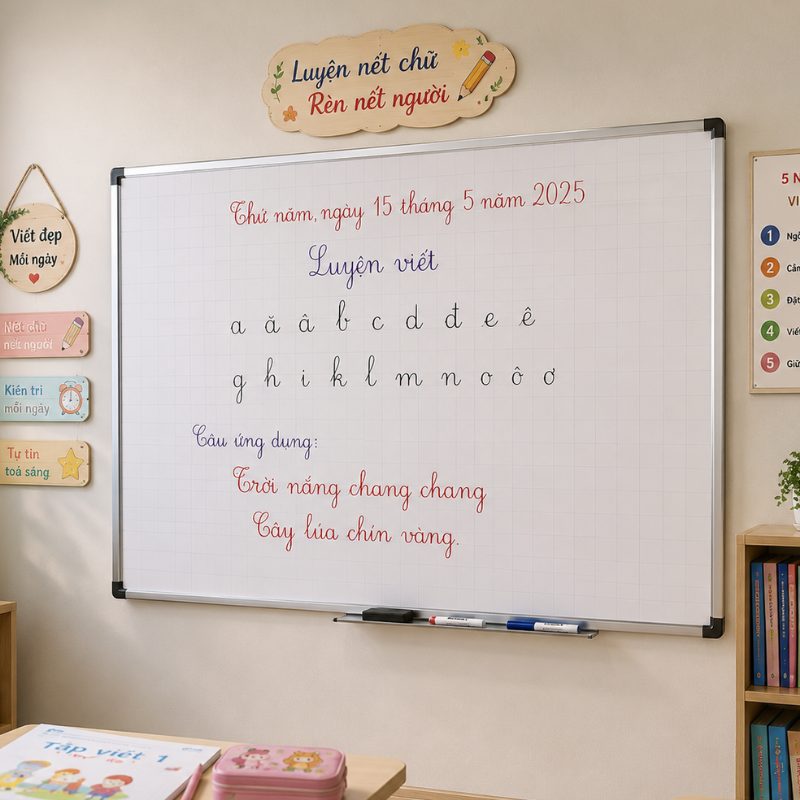 Luyện nét chữ
Rèn nết người
Thứ năm, ngày 15 tháng 5 năm 2025
Luyện viết
a ă â b c d đ e ê
g h i k l m n o ô ơ
Câu ứng dụng:
Trời nắng chang chang
Cây lúa chín vàng.
Viết đẹp
Mỗi ngày
Nét chữ
nết người
Kiên trì
mỗi ngày
Tự tin
toả sáng
5 N
VI
1 Ngồ
2 Cầm
3 Đặt
4 Viết
5 Giữ
Tập viết 1